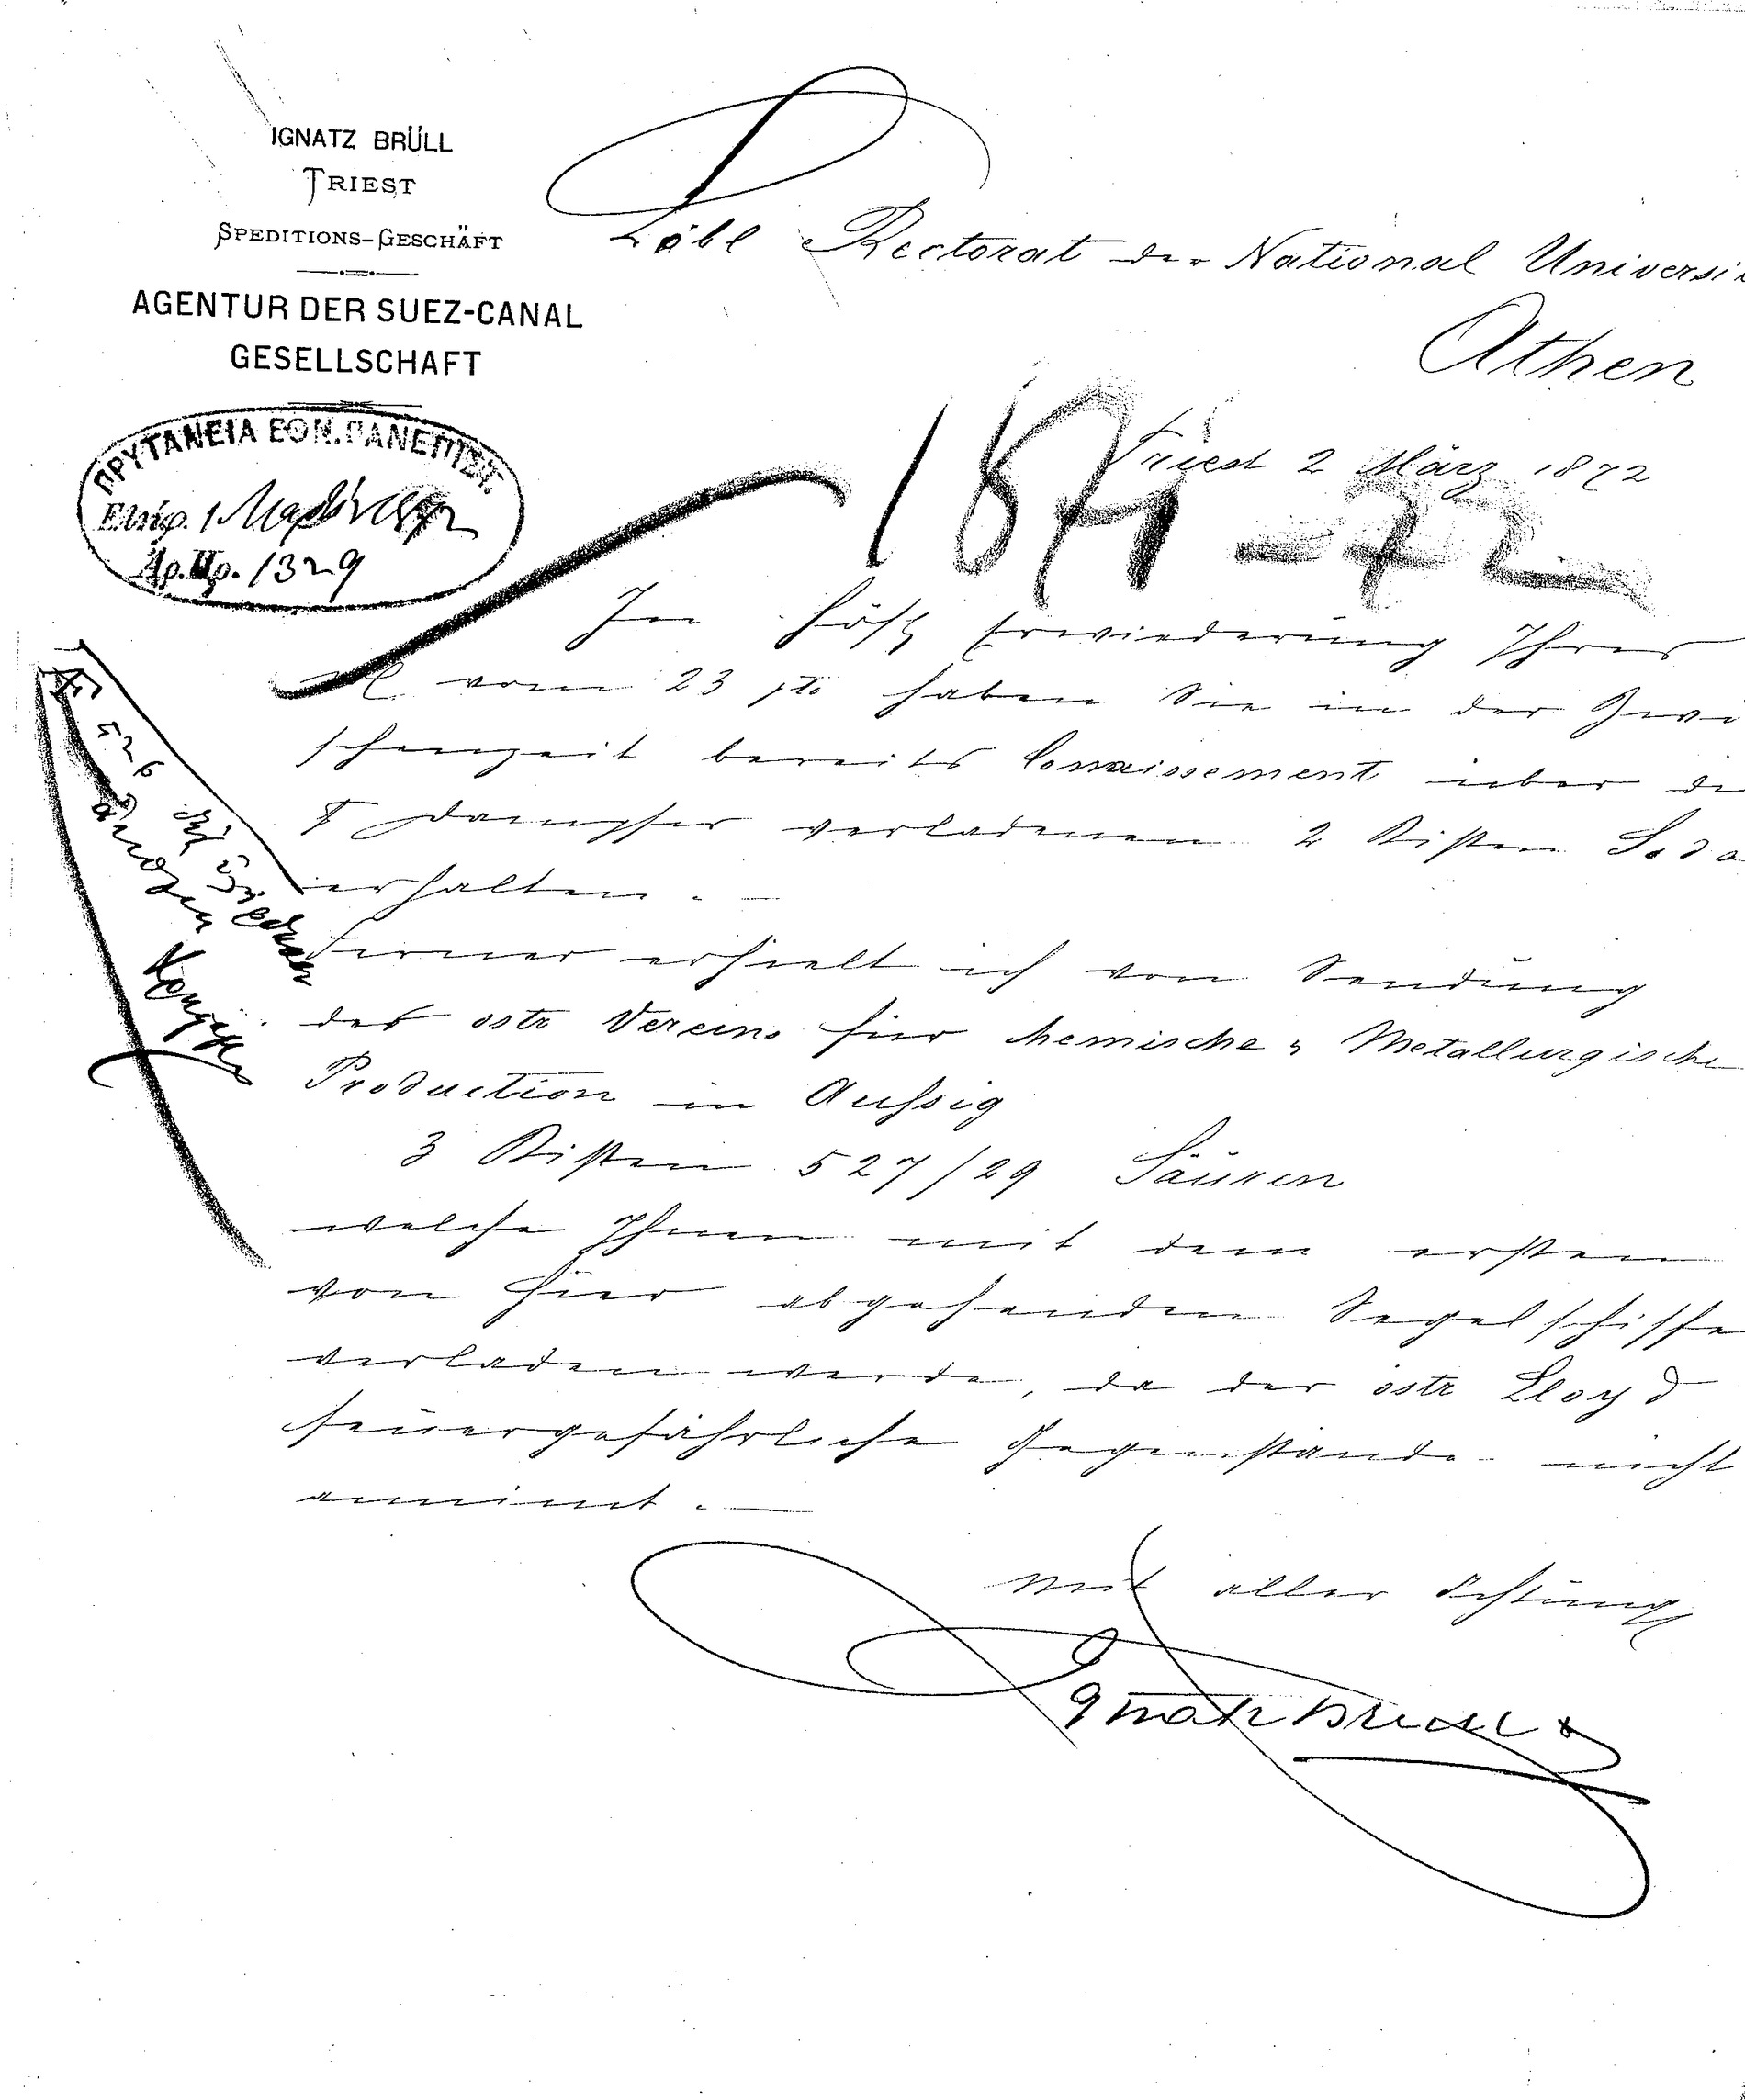 IGNATZ BRÜLL
TRIEST
SPEDITIONS-GESCHÄFT
AGENTUR DER SUEZ-CANAL
GESELLSCHAFT
Löbl Rectorat der National Universi
Athen
Triest 2 März 1872
ΠΡΥΤΑΝΕΙΑ ΕΘΝ. ΠΑΝΕΠΙΣΤ.
1
Ἀρ. Πρ. 1329
1871-72
In höfl Erwiederung Ihres
vom 23 pto haben Sie in der Zwi
schenzeit bereits Connaissement über di
Dampfer verladenen 2 Kisten Soda
erhalten. —
Ferner erhielt ich von Sendung
des östr Vereins für chemische & Metallurgische
Production in Aussig
3 Kisten 527/29 Säuren
welche Ihnen mit dem ersten
von hier abgehenden Segelschiffe
verladen werde, da der östr Lloyd
feuergefährliche Gegenstände nicht
annimt. —
Mit aller Achtung
Ignatz Brüll